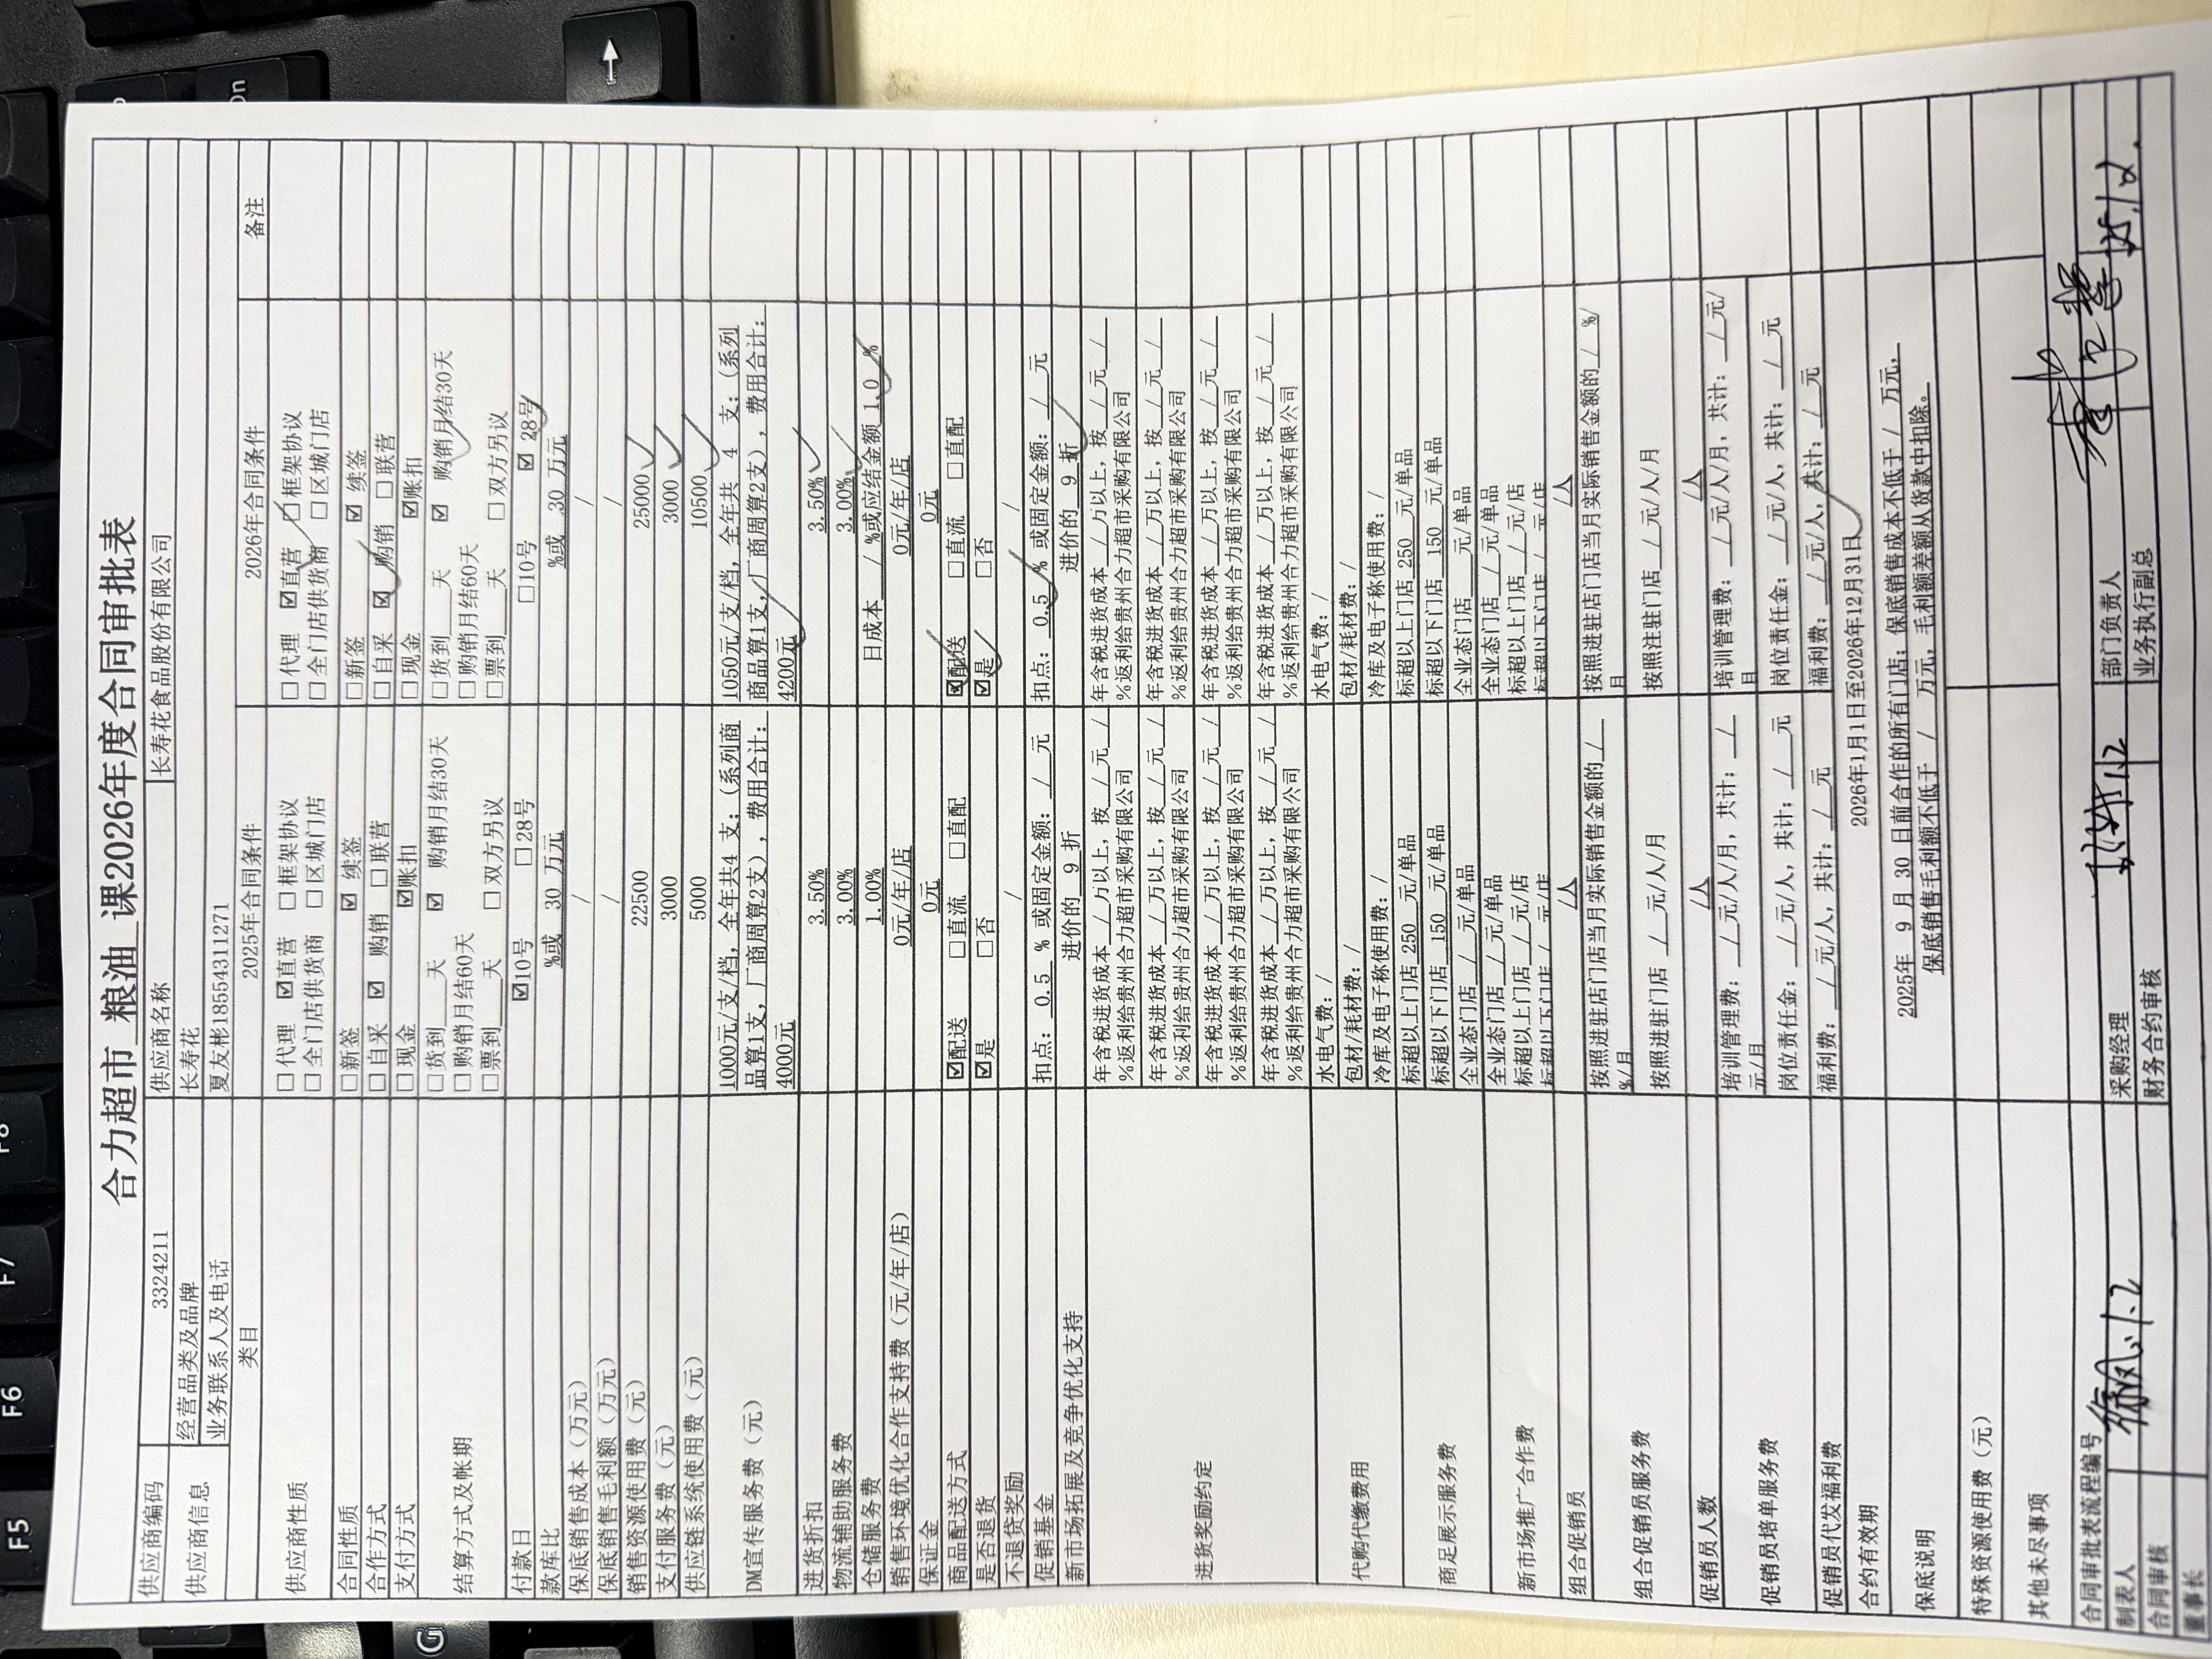 合力超市 粮油 课2026年度合同审批表
供应商编码 3324211 供应商名称 长寿花食品股份有限公司
供应商信息 经营品类及品牌 长寿花
业务联系人及电话 夏友彬18554311271
类目 2025年合同条件 2026年合同条件 备注
供应商性质 □代理 ☑直营 □框架协议 □代理 ☑直营 □框架协议
□全门店供货商 □区域门店 □全门店供货商 □区城门店
合同性质 □新签 ☑ 续签 □新签 ☑ 续签
合作方式 □自采 ☑ 购销 □联营 □自采 ☑ 购销 □联营
支付方式 □现金 ☑账扣 □现金 ☑账扣
结算方式及帐期 □货到 天 ☑ 购销月结30天 □货到 天 ☑ 购销月结30天
□购销月结60天 □购销月结60天
□票到 天 □双方另议 □票到 天 □双方另议
付款日 ☑10号 □28号 □10号 ☑ 28号
款库比 %或 30 万元 %或 30 万元
保底销售成本（万元） / /
保底销售毛利额（万元） / /
销售资源使用费（元） 22500 25000
支付服务费（元） 3000 3000
供应链系统使用费（元） 5000 10500
DM宣传服务费（元） 1000元/支/档，全年共4 支；（系列商 1050元/支/档，全年共 4 支；（系列
品算1支，厂商周算2支），费用合计： 商品算1支，厂商周算2支），费用合计：
4000元 4200元
进货折扣 3.50% 3.50%
物流辅助服务费 3.00% 3.00%
仓储服务费 1.00% 日成本 / %或应结金额 1.0 %
销售环境优化合作支持费（元/年/店） 0元/年/店 0元/年/店
保证金 0元 0元
商品配送方式 ☑配送 □直流 □直配 ☑配送 □直流 □直配
是否退货 ☑是 □否 ☑是 □否
不退贷奖励 / /
促销基金 扣点： 0.5 % 或固定金额： / 元 扣点： 0.5 % 或固定金额： / 元
新市场拓展及竞争优化支持 进价的 9 折 进价的 9 折
进货奖励约定 年含税进货成本 / 万以上，按 / 元 / 年含税进货成本 / 万以上，按 / 元 /
%返利给贵州合力超市采购有限公司 %返利给贵州合力超市采购有限公司
年含税进货成本 / 万以上，按 / 元 / 年含税进货成本 / 万以上，按 / 元 /
%返利给贵州合力超市采购有限公司 %返利给贵州合力超市采购有限公司
年含税进货成本 / 万以上，按 / 元 / 年含税进货成本 / 万以上，按 / 元 /
%返利给贵州合力超市采购有限公司 %返利给贵州合力超市采购有限公司
年含税进货成本 / 万以上，按 / 元 / 年含税进货成本 / 万以上，按 / 元 /
%返利给贵州合力超市采购有限公司 %返利给贵州合力超市采购有限公司
代购代缴费用 水电气费： / 水电气费： /
包材/耗材费： / 包材/耗材费： /
冷库及电子称使用费： / 冷库及电子称使用费： /
商足展示服务费 标超以上门店 250 元/单品 标超以上门店 250 元/单品
标超以下门店 150 元/单品 标超以下门店 150 元/单品
全业态门店 / 元/单品 全业态门店 / 元/单品
新市场推广合作费 全业态门店 / 元/单品 全业态门店 / 元/单品
标超以上门店 / 元/店 标超以上门店 / 元/店
标超以下门店 / 元/店 标超以下门店 / 元/店
组合促销员 /人 /人
组合促销员服务费 按照进驻店门店当月实际销售金额的 / 按照进驻店门店当月实际销售金额的 / %/
%/月 月
按照进驻门店 / 元/人/月 按照注驻门店 / 元/人/月
促销员人数 /人 /人
促销员培单服务费 培训管理费： / 元/人/月，共计： / 培训管理费： / 元/人/月，共计： / 元/
元/月 月
岗位责任金： / 元/人，共计： / 元 岗位责任金： / 元/人，共计： / 元
促销员代发福利费 福利费： / 元/人，共计： / 元 福利费： / 元/人，共计： / 元
合约有效期 2026年1月1日至2026年12月31日
保底说明 2025年 9 月 30 日前合作的所有门店；保底销售成本不低于 / 万元，
保底销售毛利额不低于 / 万元，毛利差额从货款中扣除。
特殊资源使用费（元）
其他未尽事项
合同审批表流程编号
制表人 1.2 采购经理 1.2 部门负责人
合同审核 财务合约审核 业务执行副总
董事长